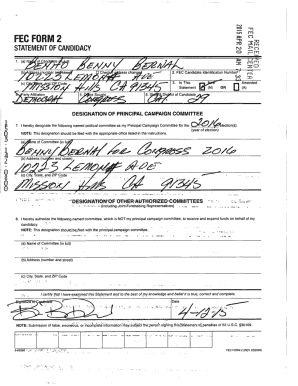 FEC FORM 2
STATEMENT OF CANDIDACY
RECEIVED
FEC MAIL CENTER
2015 APR 20 AM
1. (a) Name of Candidate (in full)
BENITO BENNY BERNAL
10223 LEMONA AVE
2. FEC Candidate Identification Number
MISSION HILLS CA 91345
3. Is This Statement
New (N) OR Amended (A)
DEMOCRAT CONGRESS CA 29
DESIGNATION OF PRINCIPAL CAMPAIGN COMMITTEE
7. I hereby designate the following named political committee as my Principal Campaign Committee for the 2016 election(s).
(year of election)
NOTE: This designation should be filed with the appropriate office listed in the instructions.
(a) Name of Committee (in full)
BENNY BERNAL FOR CONGRESS 2016
(b) Address (number and street)
10223 LEMONA AVE
(c) City, State, and ZIP Code
MISSION HILLS CA 91345
DESIGNATION OF OTHER AUTHORIZED COMMITTEES
(Including Joint Fundraising Representatives)
8. I hereby authorize the following named committee, which is NOT my principal campaign committee, to receive and expend funds on behalf of my
candidacy.
NOTE: This designation should be filed with the principal campaign committee.
(a) Name of Committee (in full)
(b) Address (number and street)
(c) City, State, and ZIP Code
I certify that I have examined this Statement and to the best of my knowledge and belief it is true, correct and complete.
Signature of Candidate
Date
4-12-15
NOTE: Submission of false, erroneous, or incomplete information may subject the person signing this Statement to penalties of 52 U.S.C. §30109.